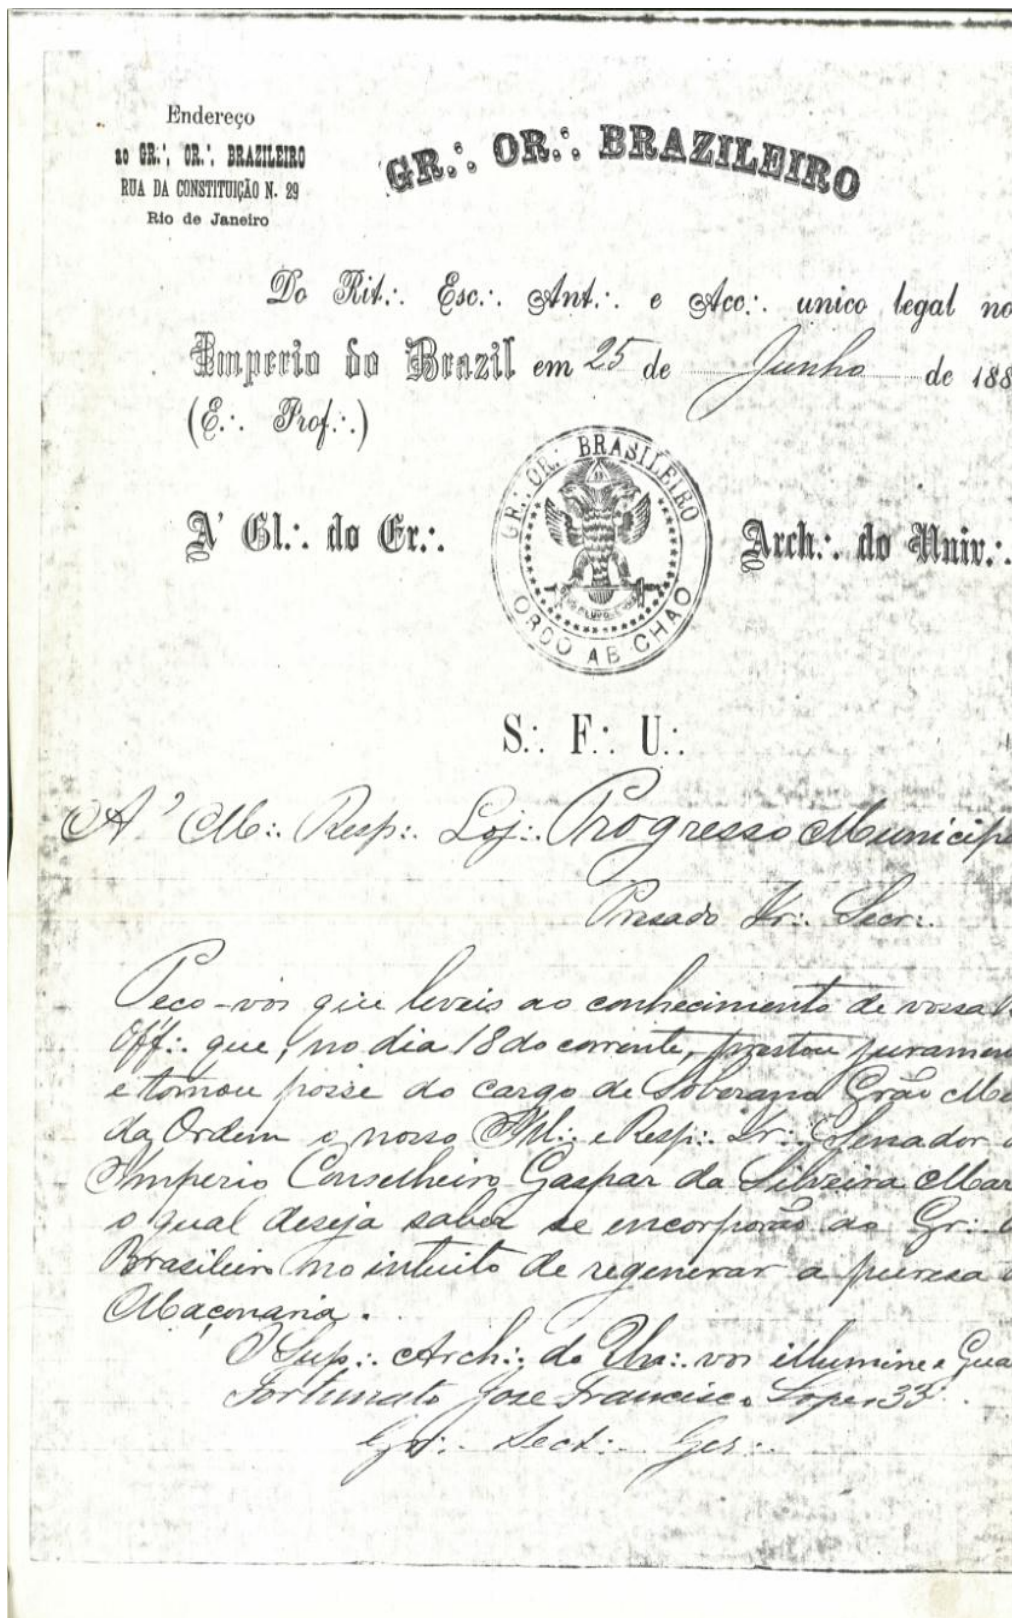 Endereço
ao GR.·. OR.·. BRAZILEIRO
RUA DA CONSTITUIÇÃO N. 29
Rio de Janeiro
GR.·. OR.·. BRAZILEIRO
Do Rit.·. Esc.·. Ant.·. e Acc.·. unico legal no
Imperio do Brazil em 25 de Junho de 188
(E.·. Prof.·.)
GR.·. OR.·. BRASILEIRO
ORDO AB CHAO
A' Gl.·. do Gr.·. Arch.·. do Univ.·.
S.·. F.·. U.·.
A' M.·. Resp.·. Loj.·. Progresso Municipa
Presado Ir.·. Secr.·.
Peço-vos que leveis ao conhecimento de vossa
Off.·. que, no dia 18 do corrente, prestou juramen
e tomou posse do cargo de Soberano Grão Me
da Ordem o nosso Ill.·. e Resp.·. Ir.·. Senador
Imperio Conselheiro Gaspar da Silveira Mar
o qual deseja saber se encorporão ao Gr.·. O
Brasileiro no intuito de regenerar a puresa
Maçonaria.
O Sup.·. Arch.·. do Un.·. vos illumine e Gua
Fortunato José Francisco Lopes 33.·.
Gr.·. Secr.·. Ger.·.